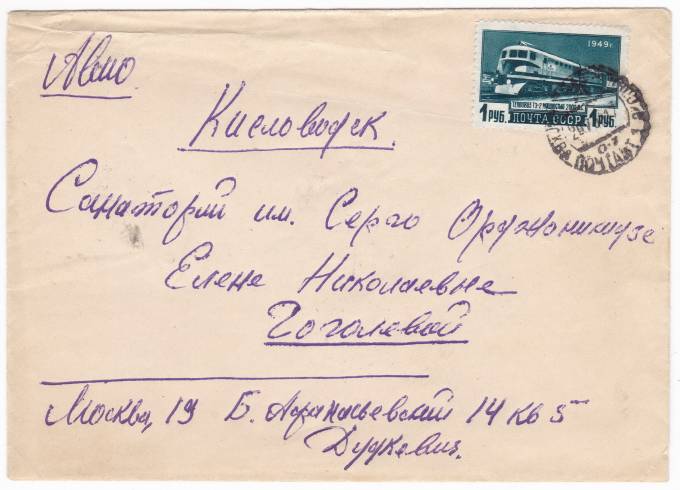 Авио.
1949г.
ТЕПЛОВОЗ ТЭ-2 МОЩНОСТЬЮ 2000 Л.С.
1 РУБ. ПОЧТА СССР 1 РУБ.
ПОЧТАМТ 1
Кисловодск.
Санаторий им. Серго Орджоникидзе
Елене Николаевне
Гоголевой
Москва, 19 Б. Афанасьевский 14 кв 5
Дудкевич.